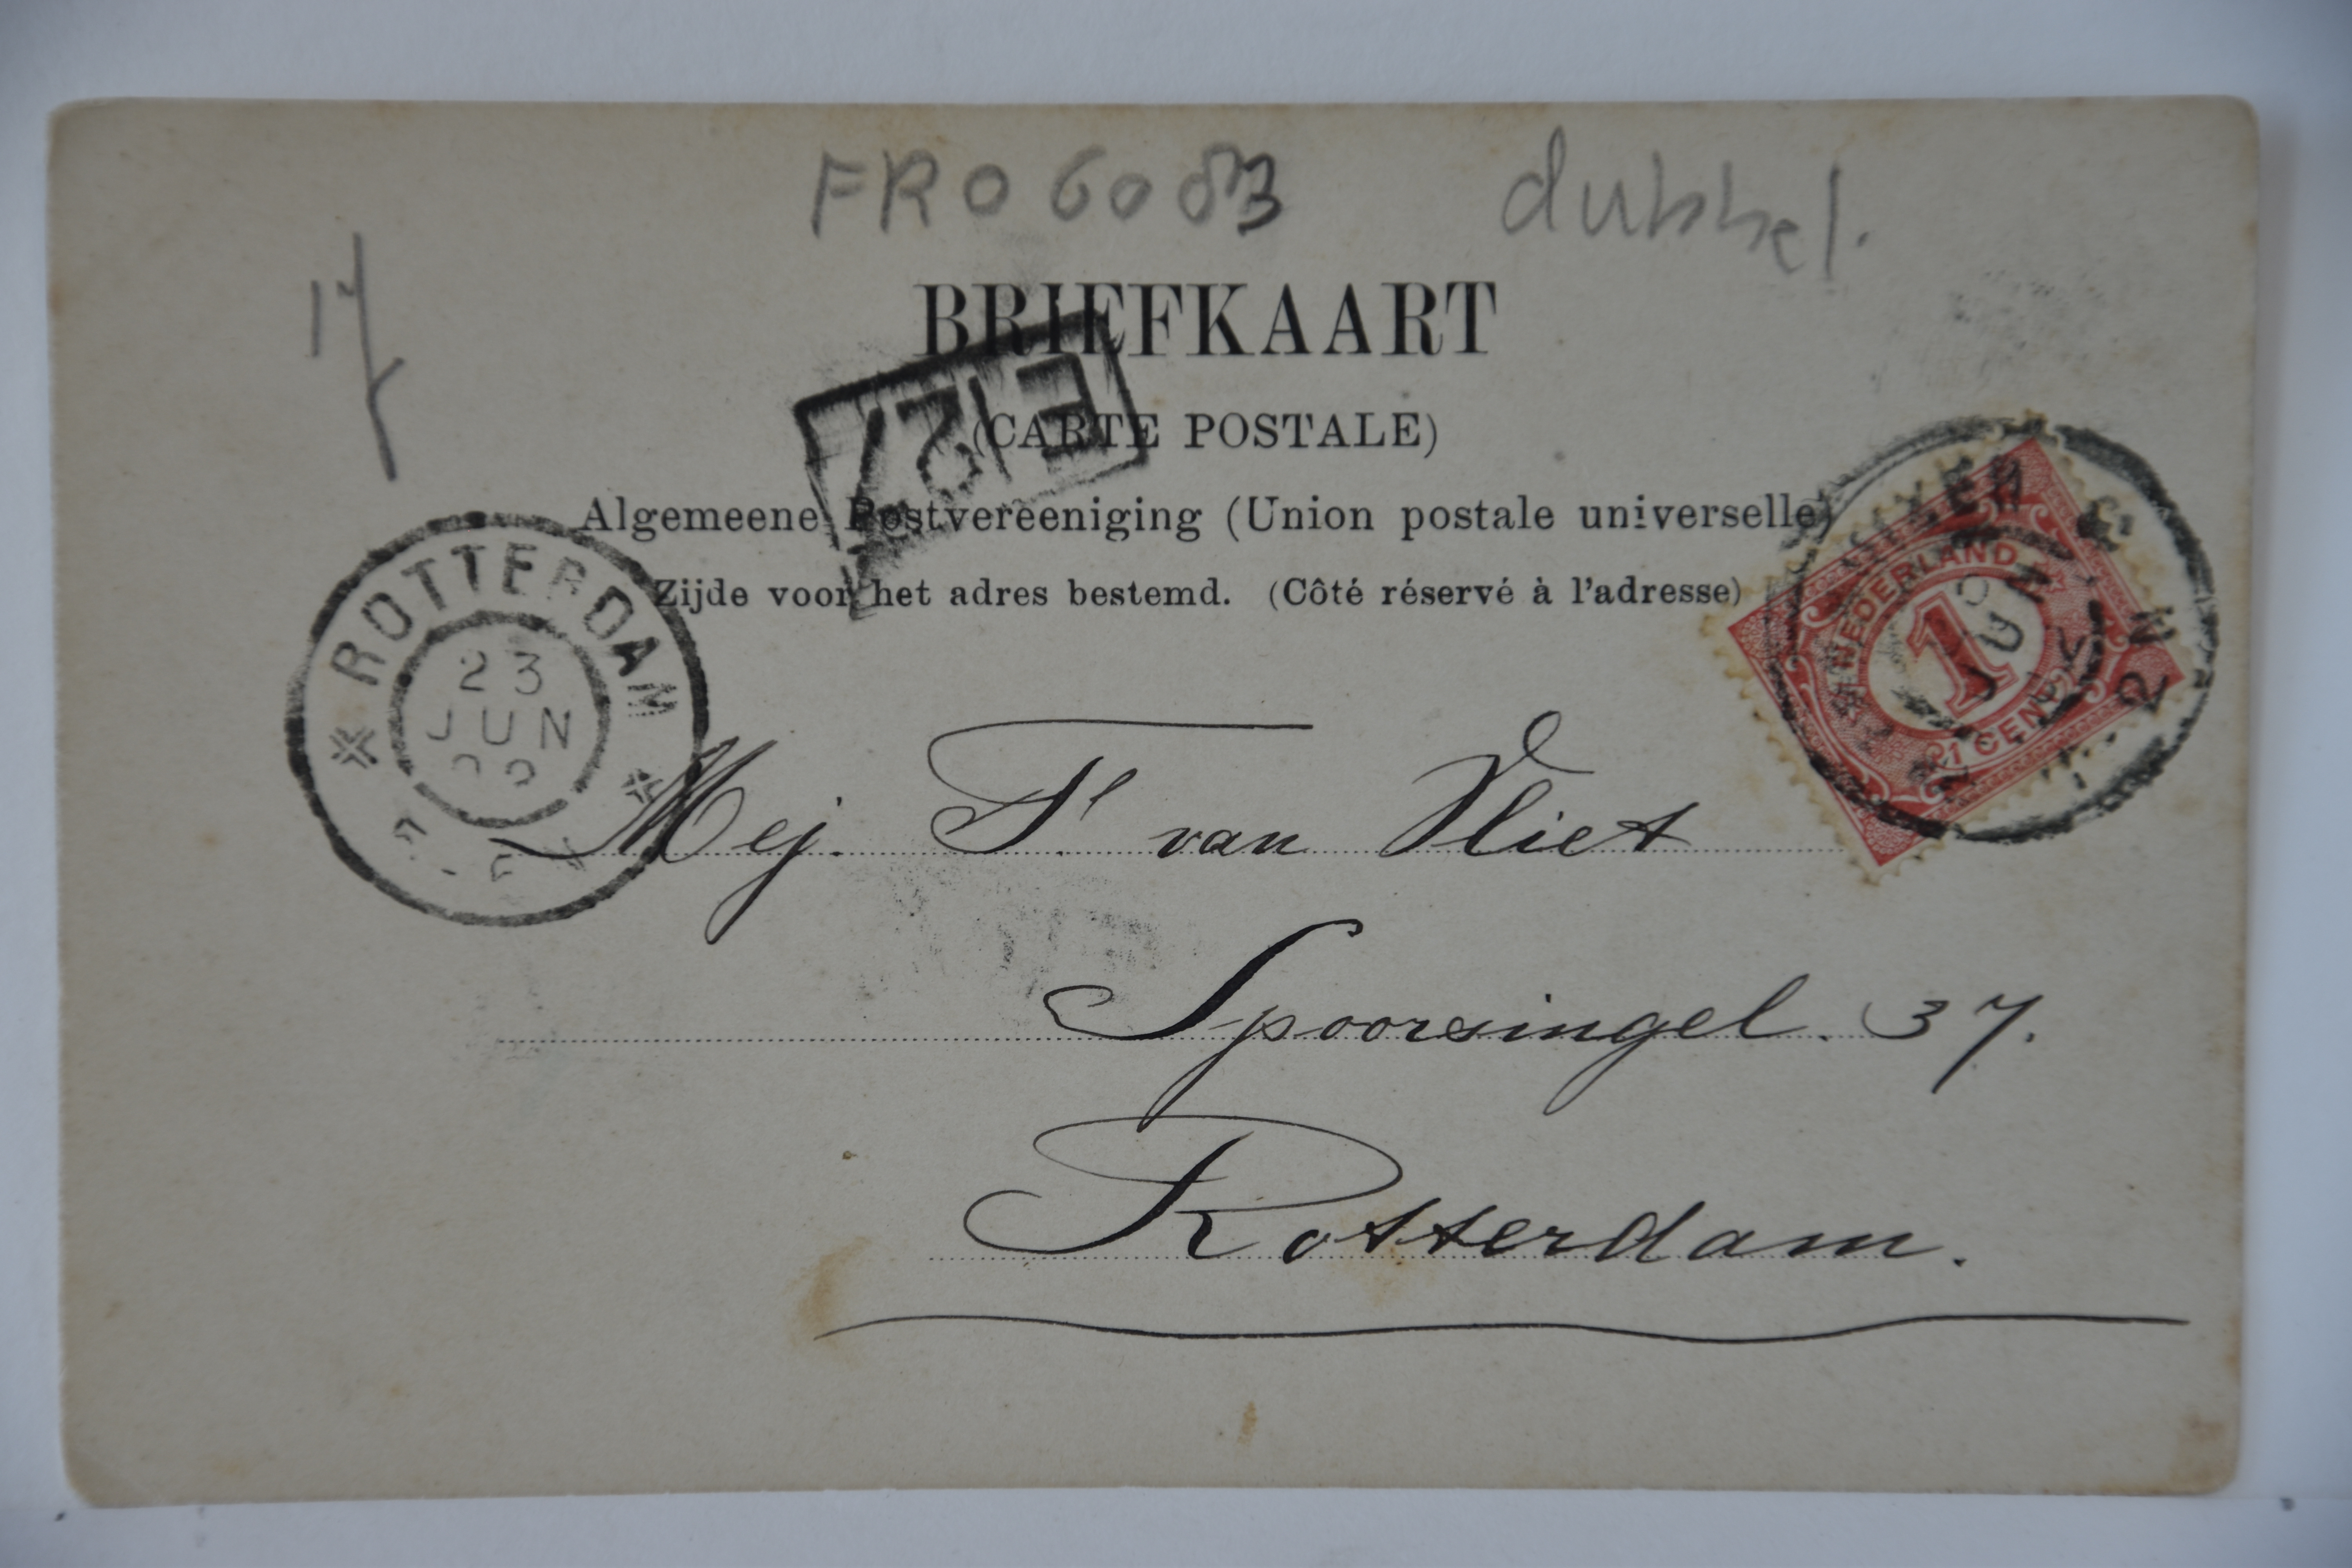 FRO 6083 dubbel.
17
BRIEFKAART
(CARTE POSTALE)
E 127
Algemeene Postvereeniging (Union postale universelle)
Zijde voor het adres bestemd. (Côté réservé à l'adresse)
ROTTERDAM
23
JUN
NEDERLAND
1
1 CENT
2 N
Mej. F. van Vliet
Spoorsingel. 37.
Rotterdam.